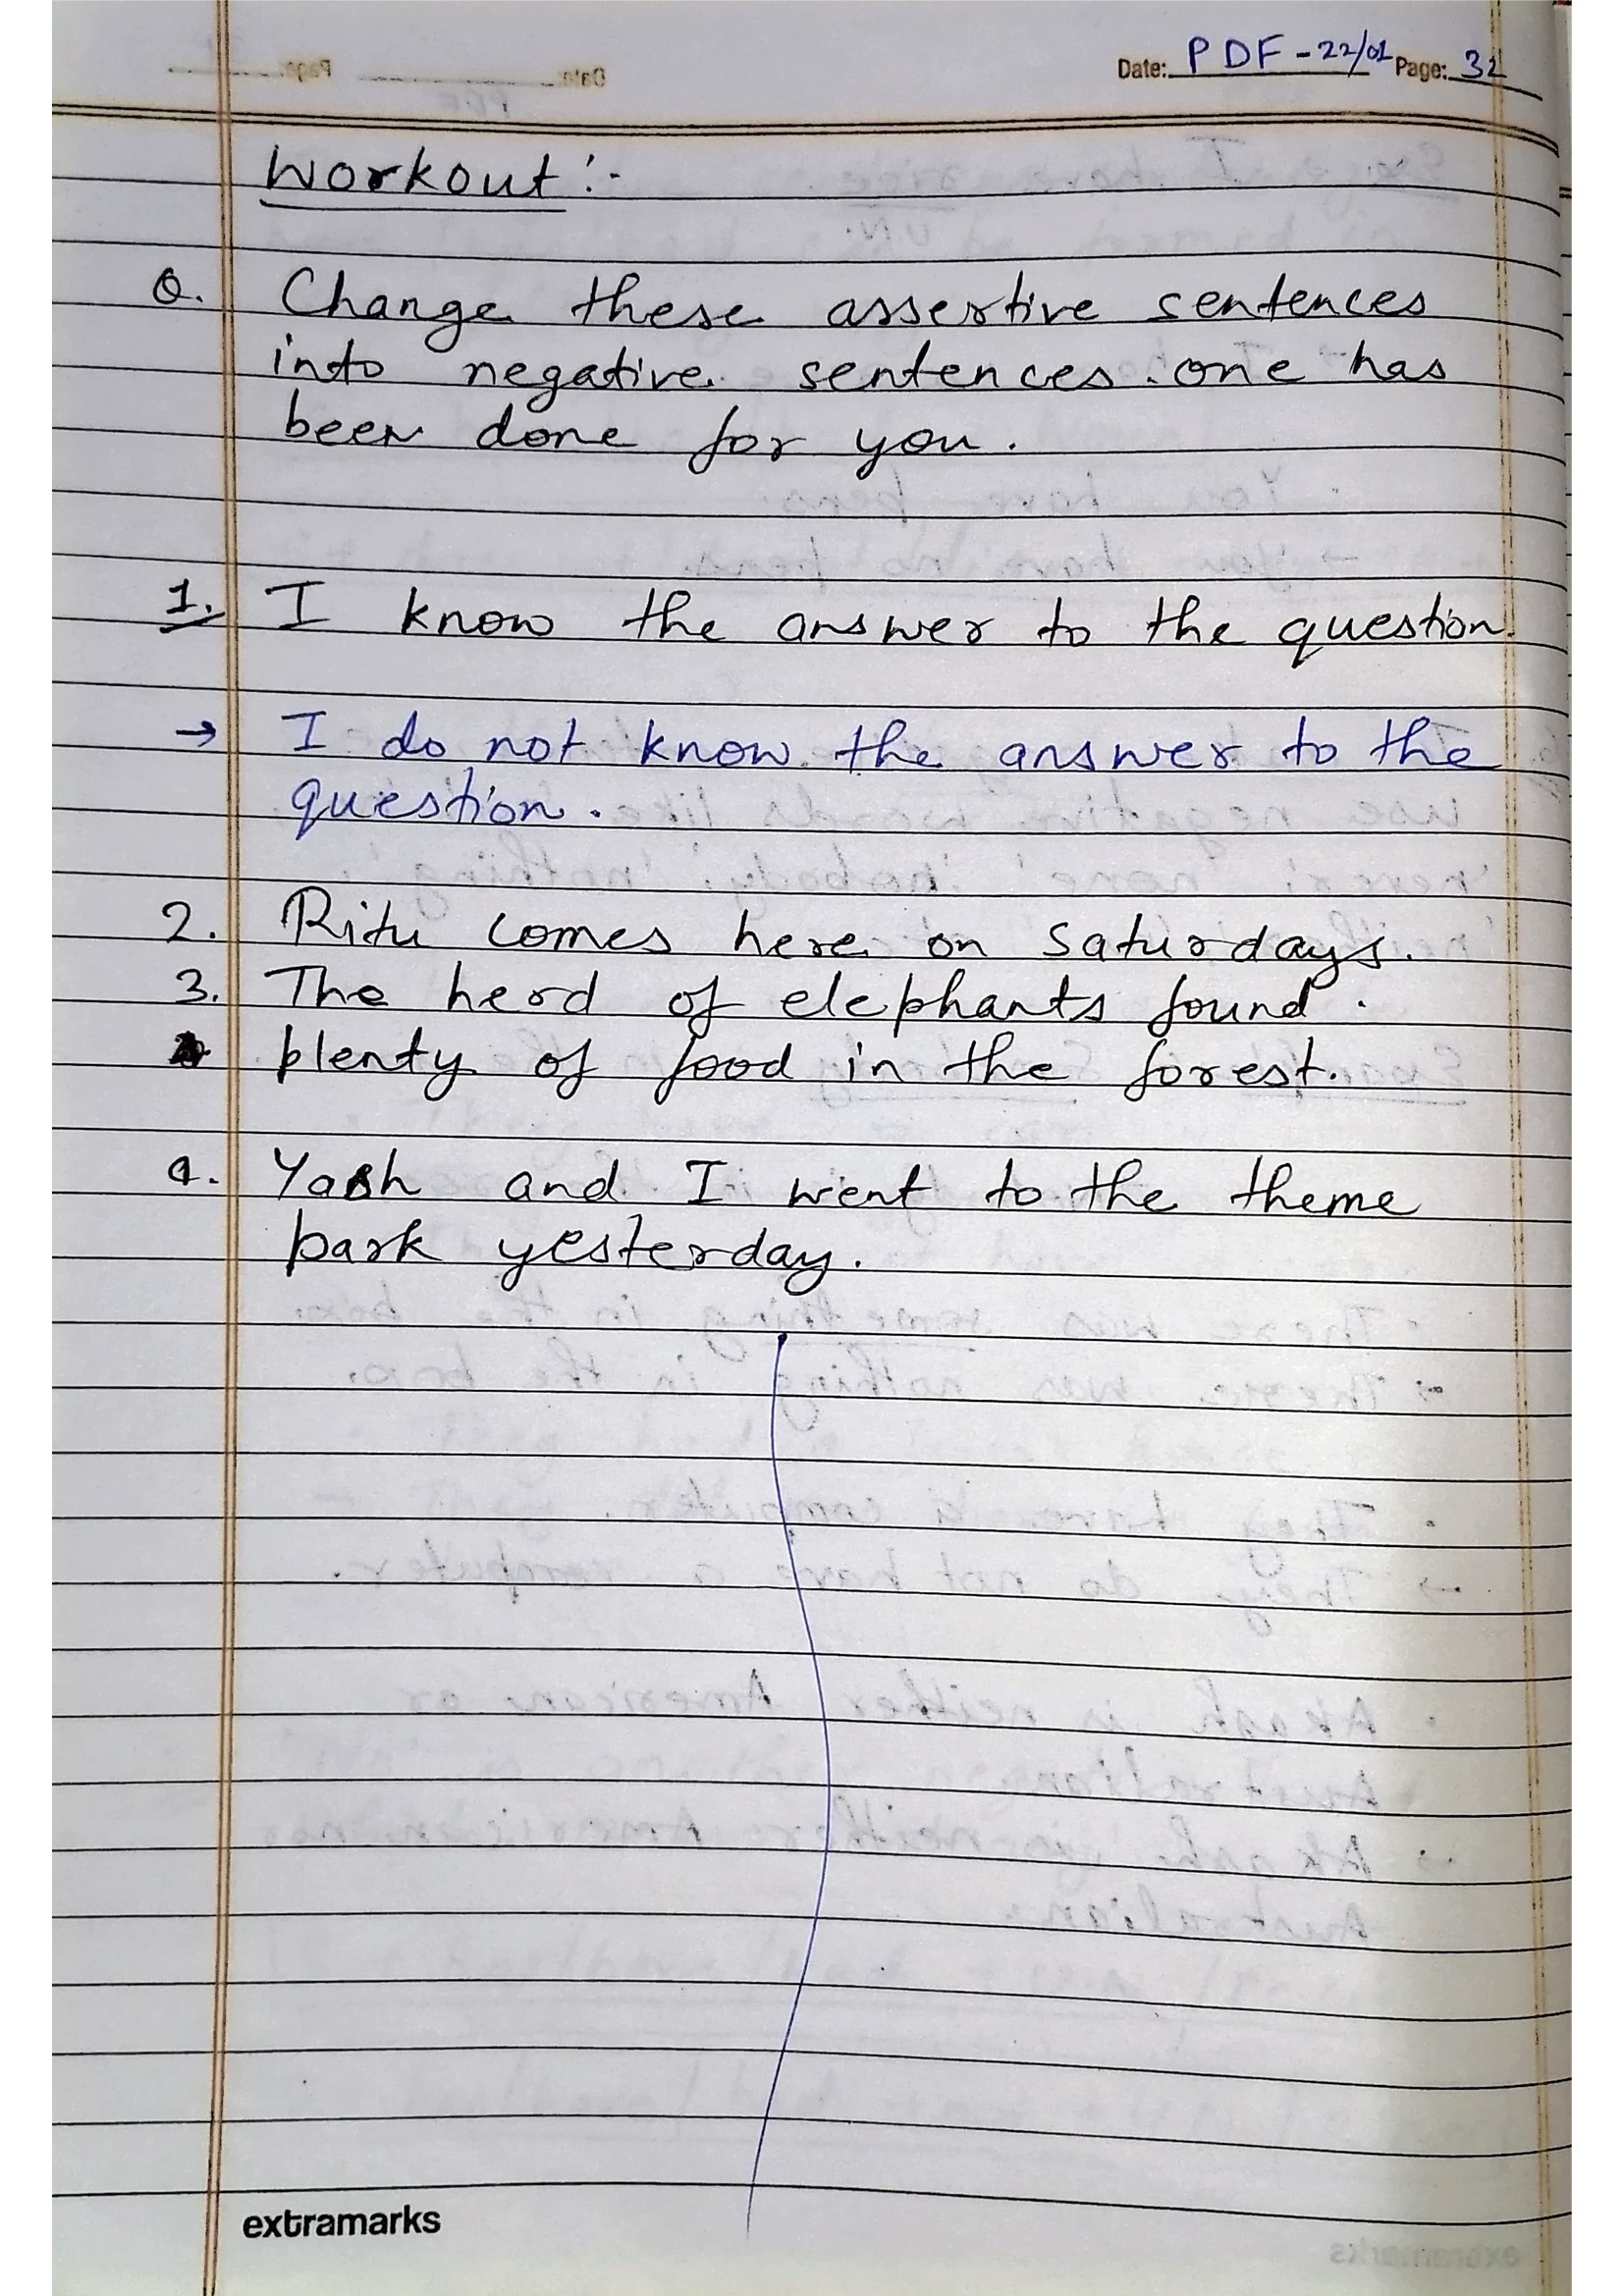 Date: PDF - 22/01 Page: 32
Workout :-
Q. Change these assertive sentences
into negative sentences. one has
been done for you.
1. I know the answer to the question.
→ I do not know the answer to the
question.
2. Ritu comes here on Saturdays.
3. The herd of elephants found.
plenty of food in the forest.
4. Yash and I went to the theme
park yesterday.
extramarks